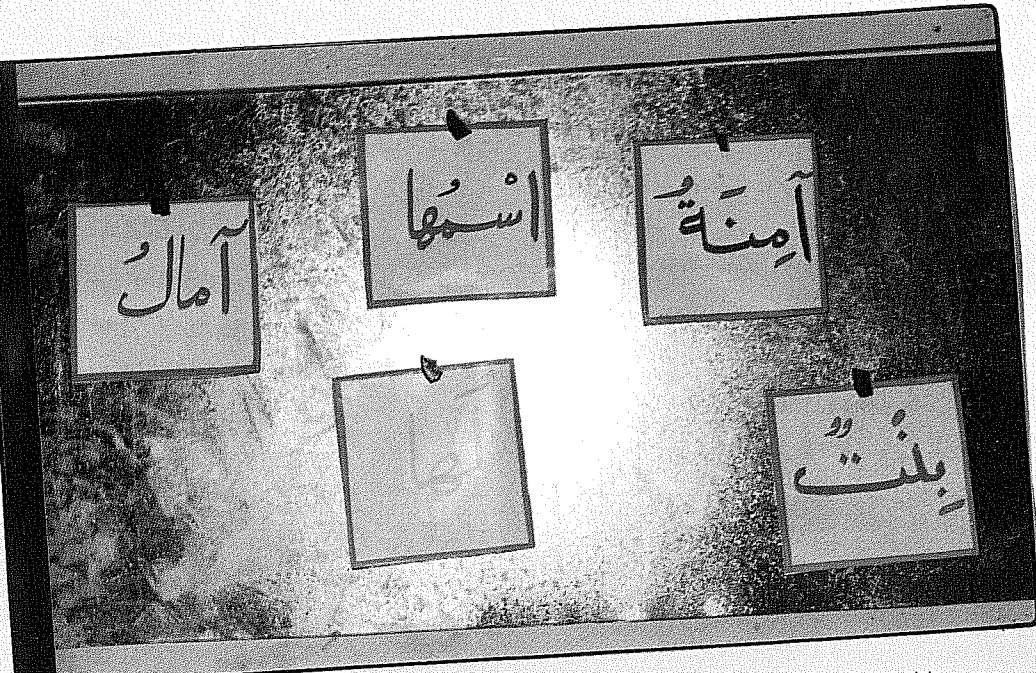 آمِنَةُ
اسْمُها
آمالُ
بِنْتٌ